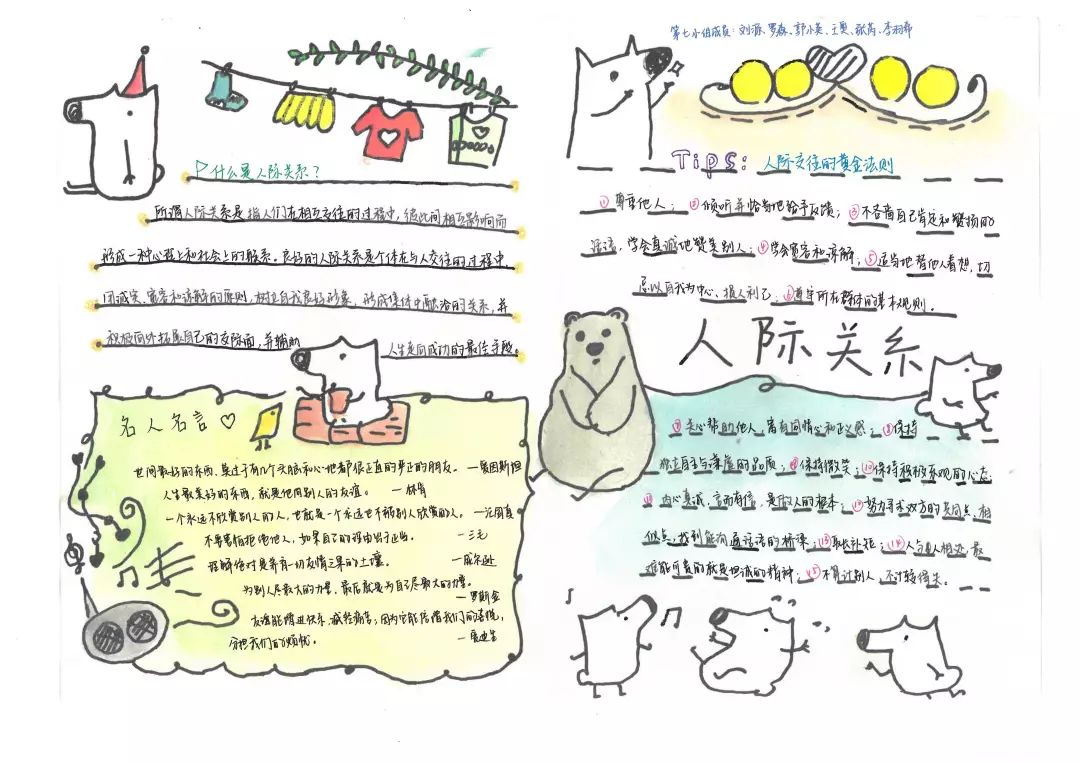 什么是人际关系？
所谓人际关系是指人们在相互交往的过程中，彼此间相互影响而
形成一种心理上和社会上的联系。良好的人际关系是个体在与人交往的过程中，
诚实、宽容和谅解的原则，树立自我良好形象，形成集体中融洽的关系，并
积极向外拓展自己的交际面，并辅助
人生走向成功的最佳手段。
名人名言
世间最好的东西，莫过于有几个头脑和心地都很正直的真正的朋友。—爱因斯坦
人生最美好的东西，就是他同别人的友谊。—林肯
一个永远不欣赏别人的人，也就是一个永远也不被别人欣赏的人。—汪国真
不要害怕拒绝他人，如果自己的理由出于正当。—三毛
理解绝对是养育一切友情之果的土壤。—威尔逊
为别人尽最大的力量，最后就是为自己尽最大的力量。
—罗斯金
友谊能增进快乐，减轻痛苦；因为它能倍增我们的喜悦，
分担我们的烦忧。
第七小组成员：刘源、罗森、郭小英、王奥、张芮、李羽希
Tips：人际交往的黄金法则
①尊重他人；②倾听并恰当地给予反馈；③不吝啬自己肯定和赞扬的
话语，学会真诚地赞美别人；④学会宽容和谅解；⑤适当地替他人着想，切
忌以自我为中心、损人利己；⑥遵守所在群体的基本规则。
人际关系
⑦关心帮助他人，富有同情心和正义感；⑧保持
独立自主与谦虚的品质；⑨保持微笑；⑩保持积极乐观的心态；
⑪内心真诚，言而有信，是做人的根本；⑫努力寻求双方的共同点、相
似点，找到能沟通话语的桥梁；⑬取长补短；⑭人与人相处，最
难能可贵的就是坦诚的精神；⑮不算计别人，不计较得失。